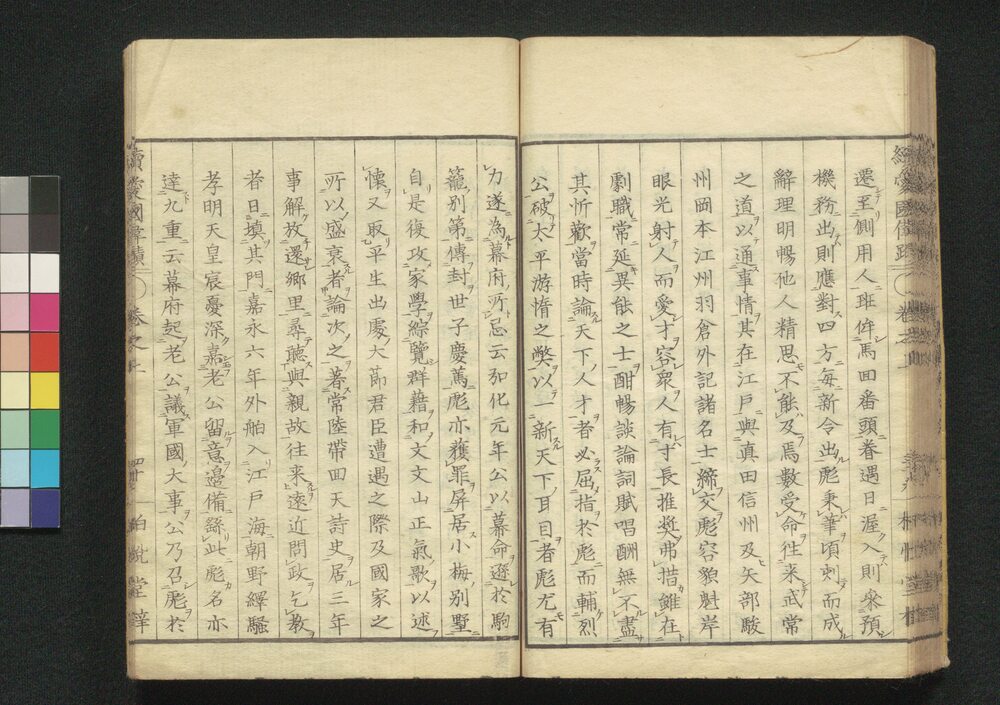 還至側用人班侔馬回番頭眷遇日渥入則釆預
機務出則應對四方每新令出彪秉筆頃刻而成
辭理明暢他人精思不能及焉數受命徃来武常
之道以通事情其在江戶與真田信州及矢部駿
州岡本江州羽倉外記諸名士締交彪容貌魁岸
眼光射人而愛才容衆人有寸長推奬弗措雖在
劇職常延異能之士酣暢談論詞賦唱酬無不盡
其忻歡當時論天下人才者必屈指於彪而輔烈
公破太平游惰之獘以一新天下耳目者彪尤有
力遂為幕府所忌云弘化元年公以幕命遜於駒
籠別第傳封世子慶篤彪亦獲罪屏居小梅別墅
自是後攻家學綜覽群籍和文文山正氣歌以述
懷又取平生出處大節君臣遭遇之際及國家之
所以盛衰者論次之著常陸帶回天詩史居三年
事解放還鄉里尋聽與親故往来遠近問政乞教
者日填其門嘉永六年外舶入江戶海朝野繹騷
孝明天皇宸憂深嘉老公留意邊備繇此彪名亦
達九重云幕府起老公議軍國大事公乃召彪於
卷之上